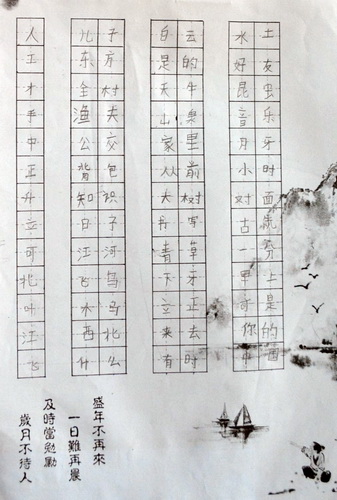 人 儿子 白云 水土
工 东方 是的 好友
才 全村 天牛 昆虫
手 渔夫 山泉 音乐
中 公交 家里 月牙
正 背包 从前 小时
升 知识 大树 对面
立 日子 书写 古
可 江河 青草 一
北 飞鸟 下牙 里上
叶 水马 立正 可是
江 西北 来去 你的
飞 什么 有时 中
盛年不再來
一日難再晨
及時當勉勵
歲月不待人